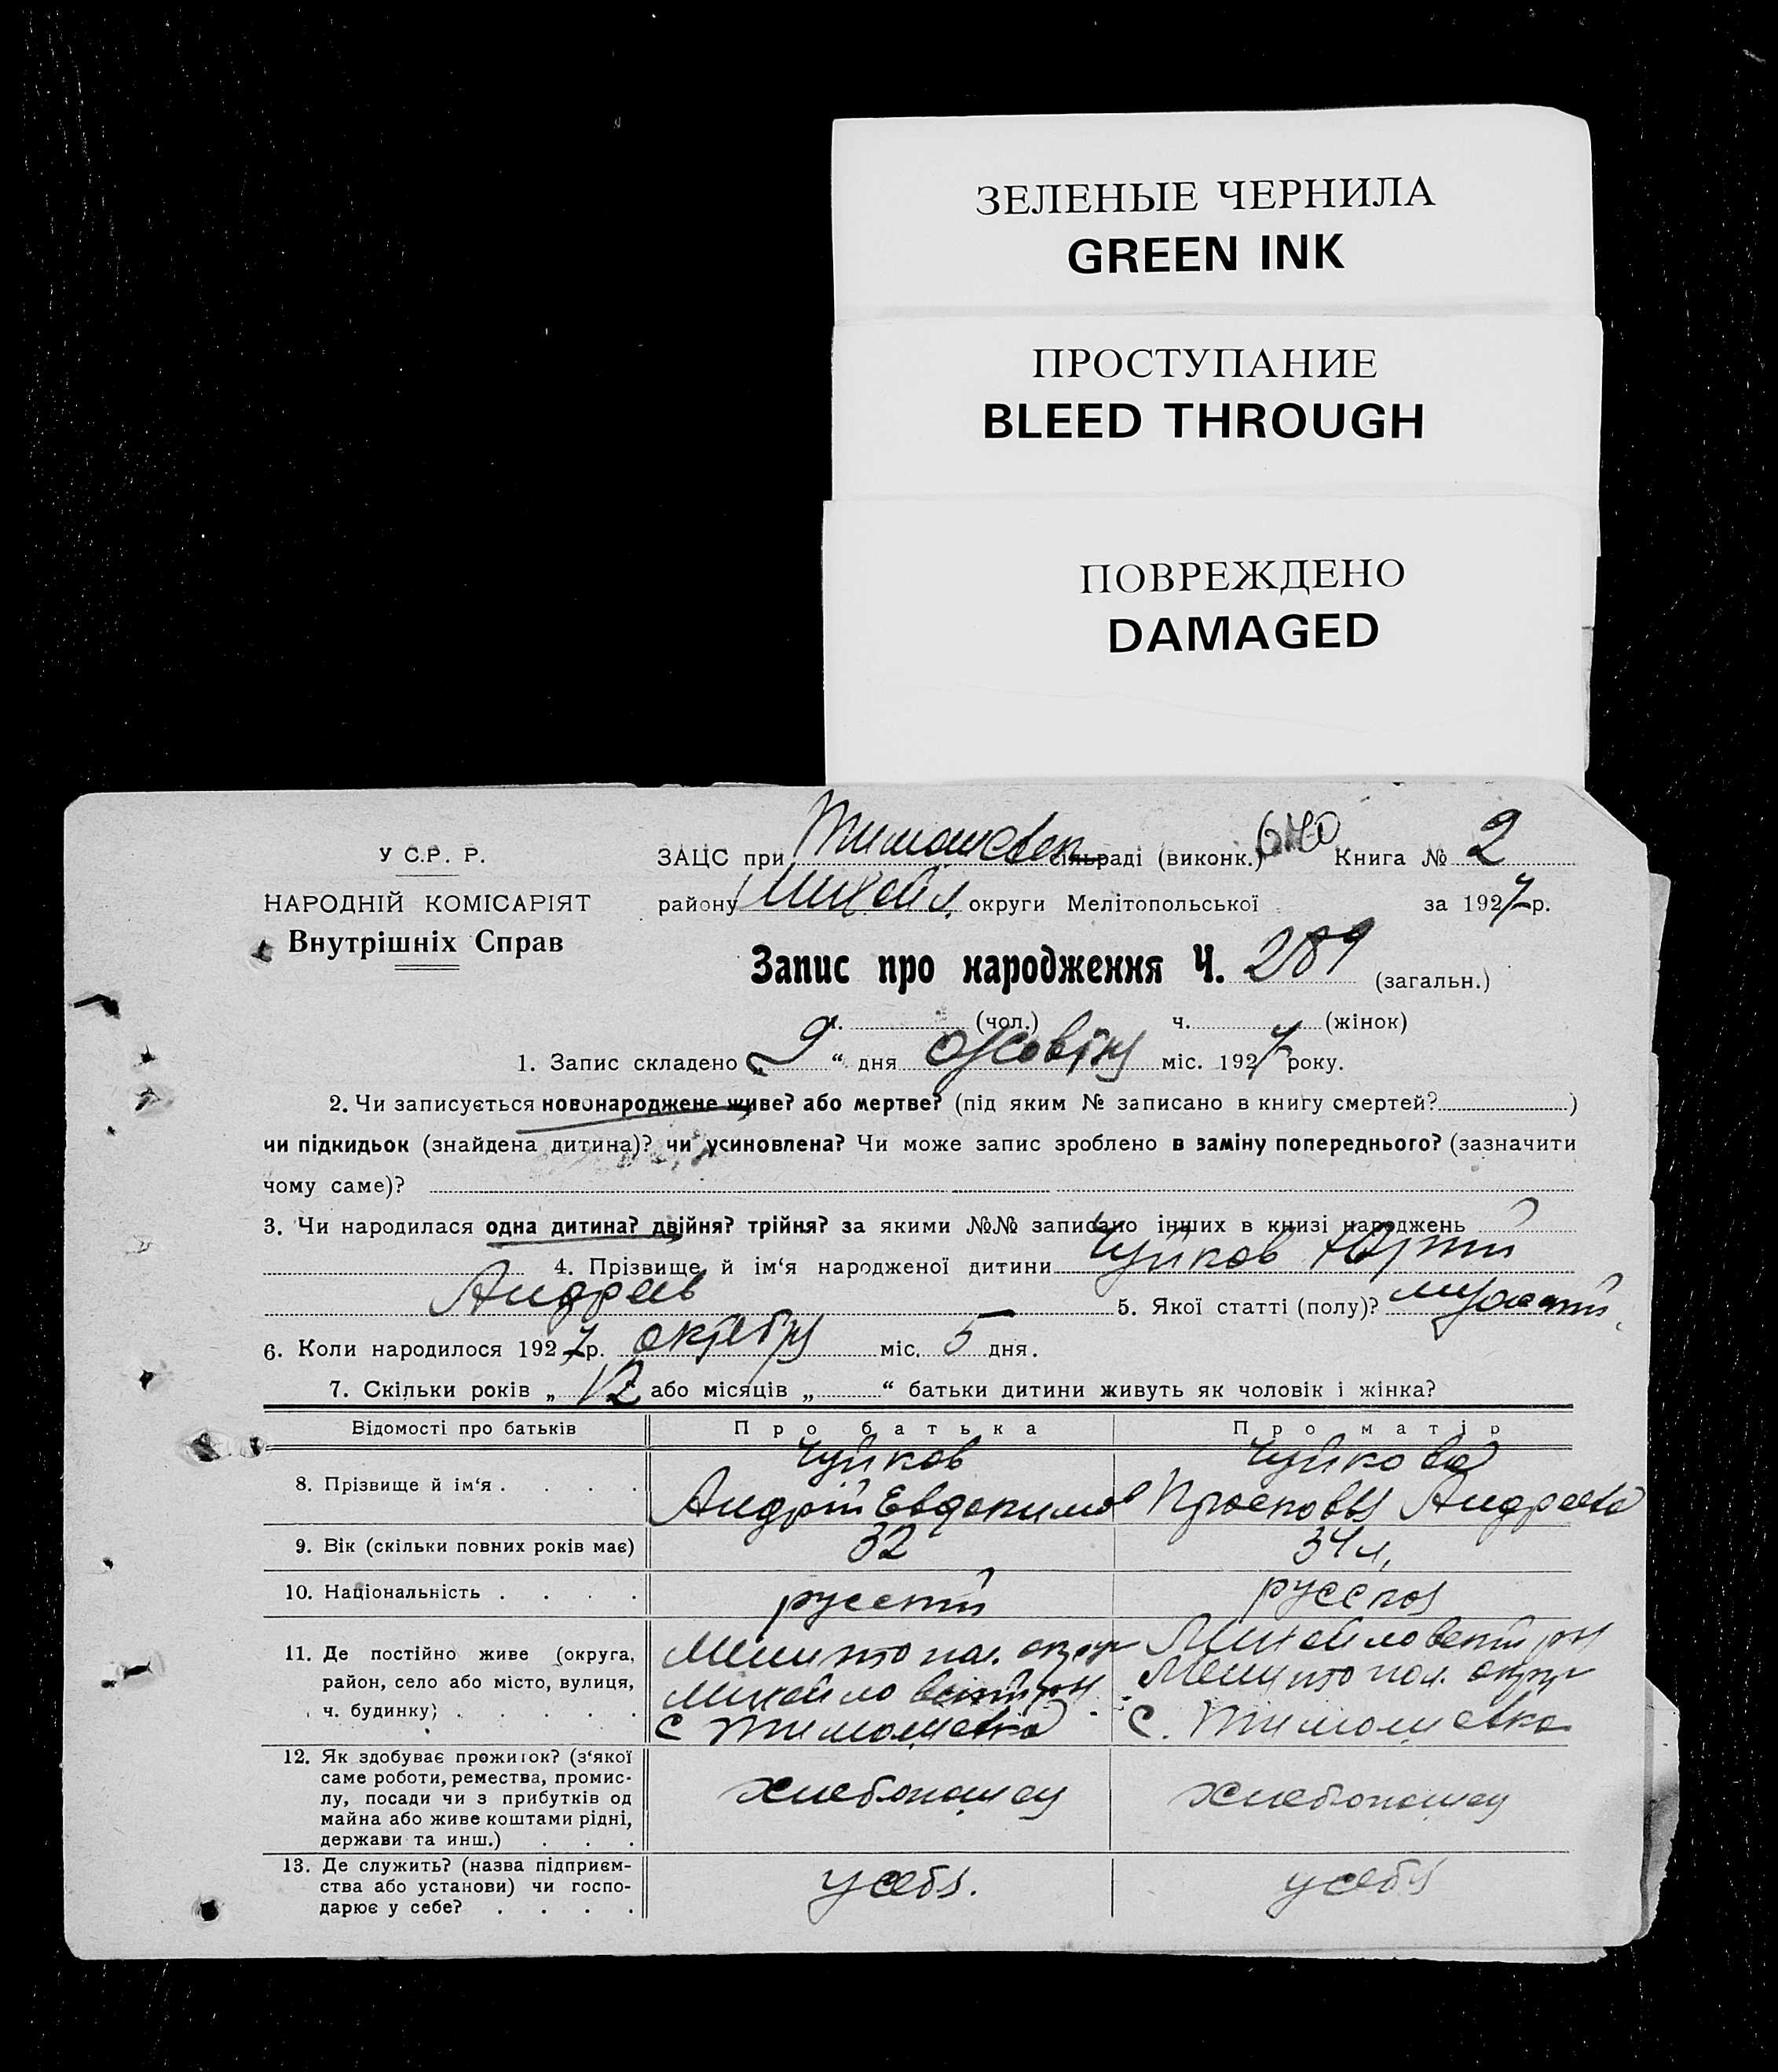 ЗЕЛЕНЫЕ ЧЕРНИЛА
GREEN INK
ПРОСТУПАНИЕ
BLEED THROUGH
ПОВРЕЖДЕНО
DAMAGED
У С.Р. Р.
НАРОДНІЙ КОМІСАРІЯТ
Внутрішніх Справ
ЗАЦС при Тимошевск сільраді (виконк.) Книга № 2
району Михайл. округи Мелітопольської за 1927 р.
Запис про народження Ч. 289 (загальн.)
ч. (чол.) ч. (жінок)
1. Запис складено „ 9 “ дня жовтня міс. 1927 року.
2. Чи записується новонароджене живе? або мертве? (під яким № записано в книгу смертей? )
чи підкидьок (знайдена дитина)? чи усиновлена? Чи може запис зроблено в заміну попереднього? (зазначити
чому саме)?
3. Чи народилася одна дитина? двійня? трійня? за якими №№ записано інших в книзі народжень
4. Прізвище й ім‘я народженої дитини Чуйков
Андреев 5. Якої статті (полу)? мужской
6. Коли народилося 1927 р. октября міс. 5 дня.
7. Скільки років „ 12 “ або місяців „ “ батьки дитини живуть як чоловік і жінка?
Відомості про батьків Про батька Про матір
8. Прізвище й ім‘я . . . . Чуйков Андрій Евдокимов Чуйкова Прасковья Андреева
9. Вік (скільки повних років має) 32 34 л.
10. Національність . . . . русский русская
11. Де постійно живе (округа, район, село або місто, вулиця, ч. будинку) . . . . . Мелитопол. округ Михайловский рн с Тимошевка Михайловский рн Мелитопол. округ с. Тимошевка
12. Як здобуває прожиток? (з‘якої саме роботи, ремества, промислу, посади чи з прибутків од майна або живе коштами рідні, держави та инш.) . . . хлебопашец хлебопашец
13. Де служить? (назва підприємства або установи) чи господарює у себе? . . . . у себя. у себя